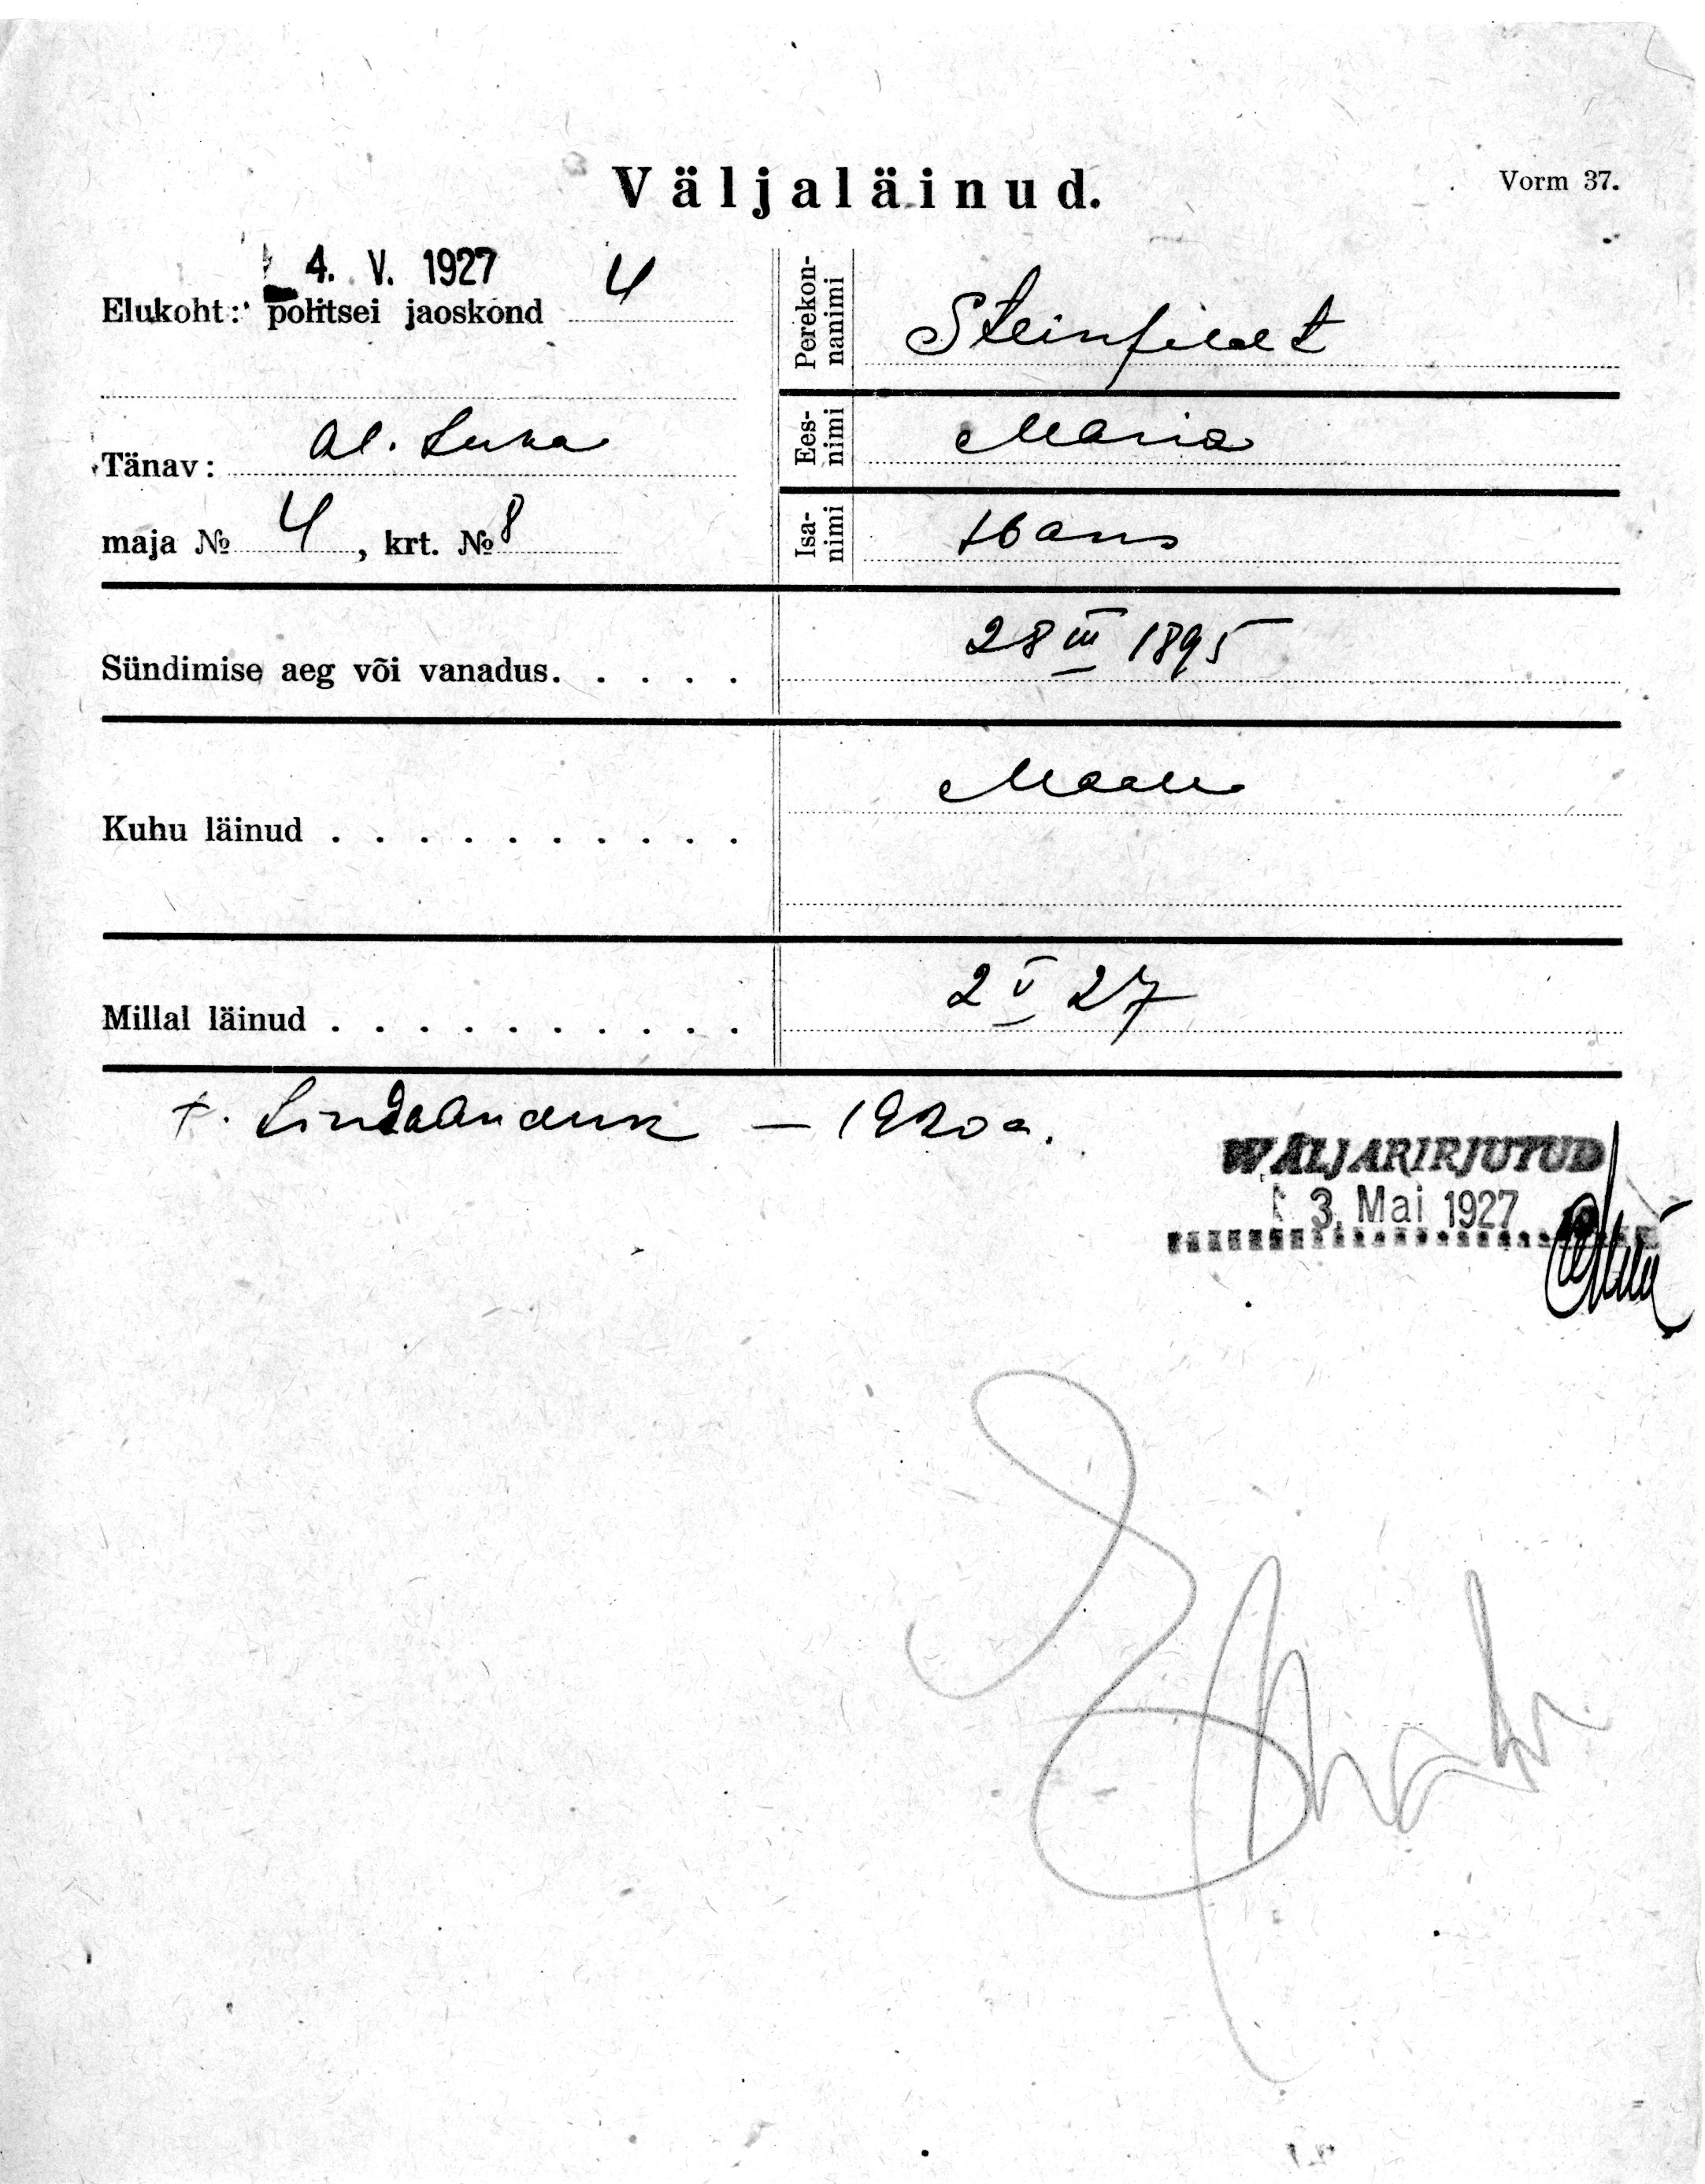 Väljaläinud.
Vorm 37.
4. V. 1927
Elukoht: politsei jaoskond 4
Tänav:
maja № 4, krt. № 8
Perekon-
nanimi
Steinfeldt
Ees-
nimi
Maria
Isa-
nimi
Hans
Sündimise aeg või vanadus. . . . . 28 III 1895
Kuhu läinud . . . . . . . . . . Maale
Millal läinud . . . . . . . . . . 2 V 27
— 1920 a.
WÄLJAKIRJUTUD
3. Mai 1927